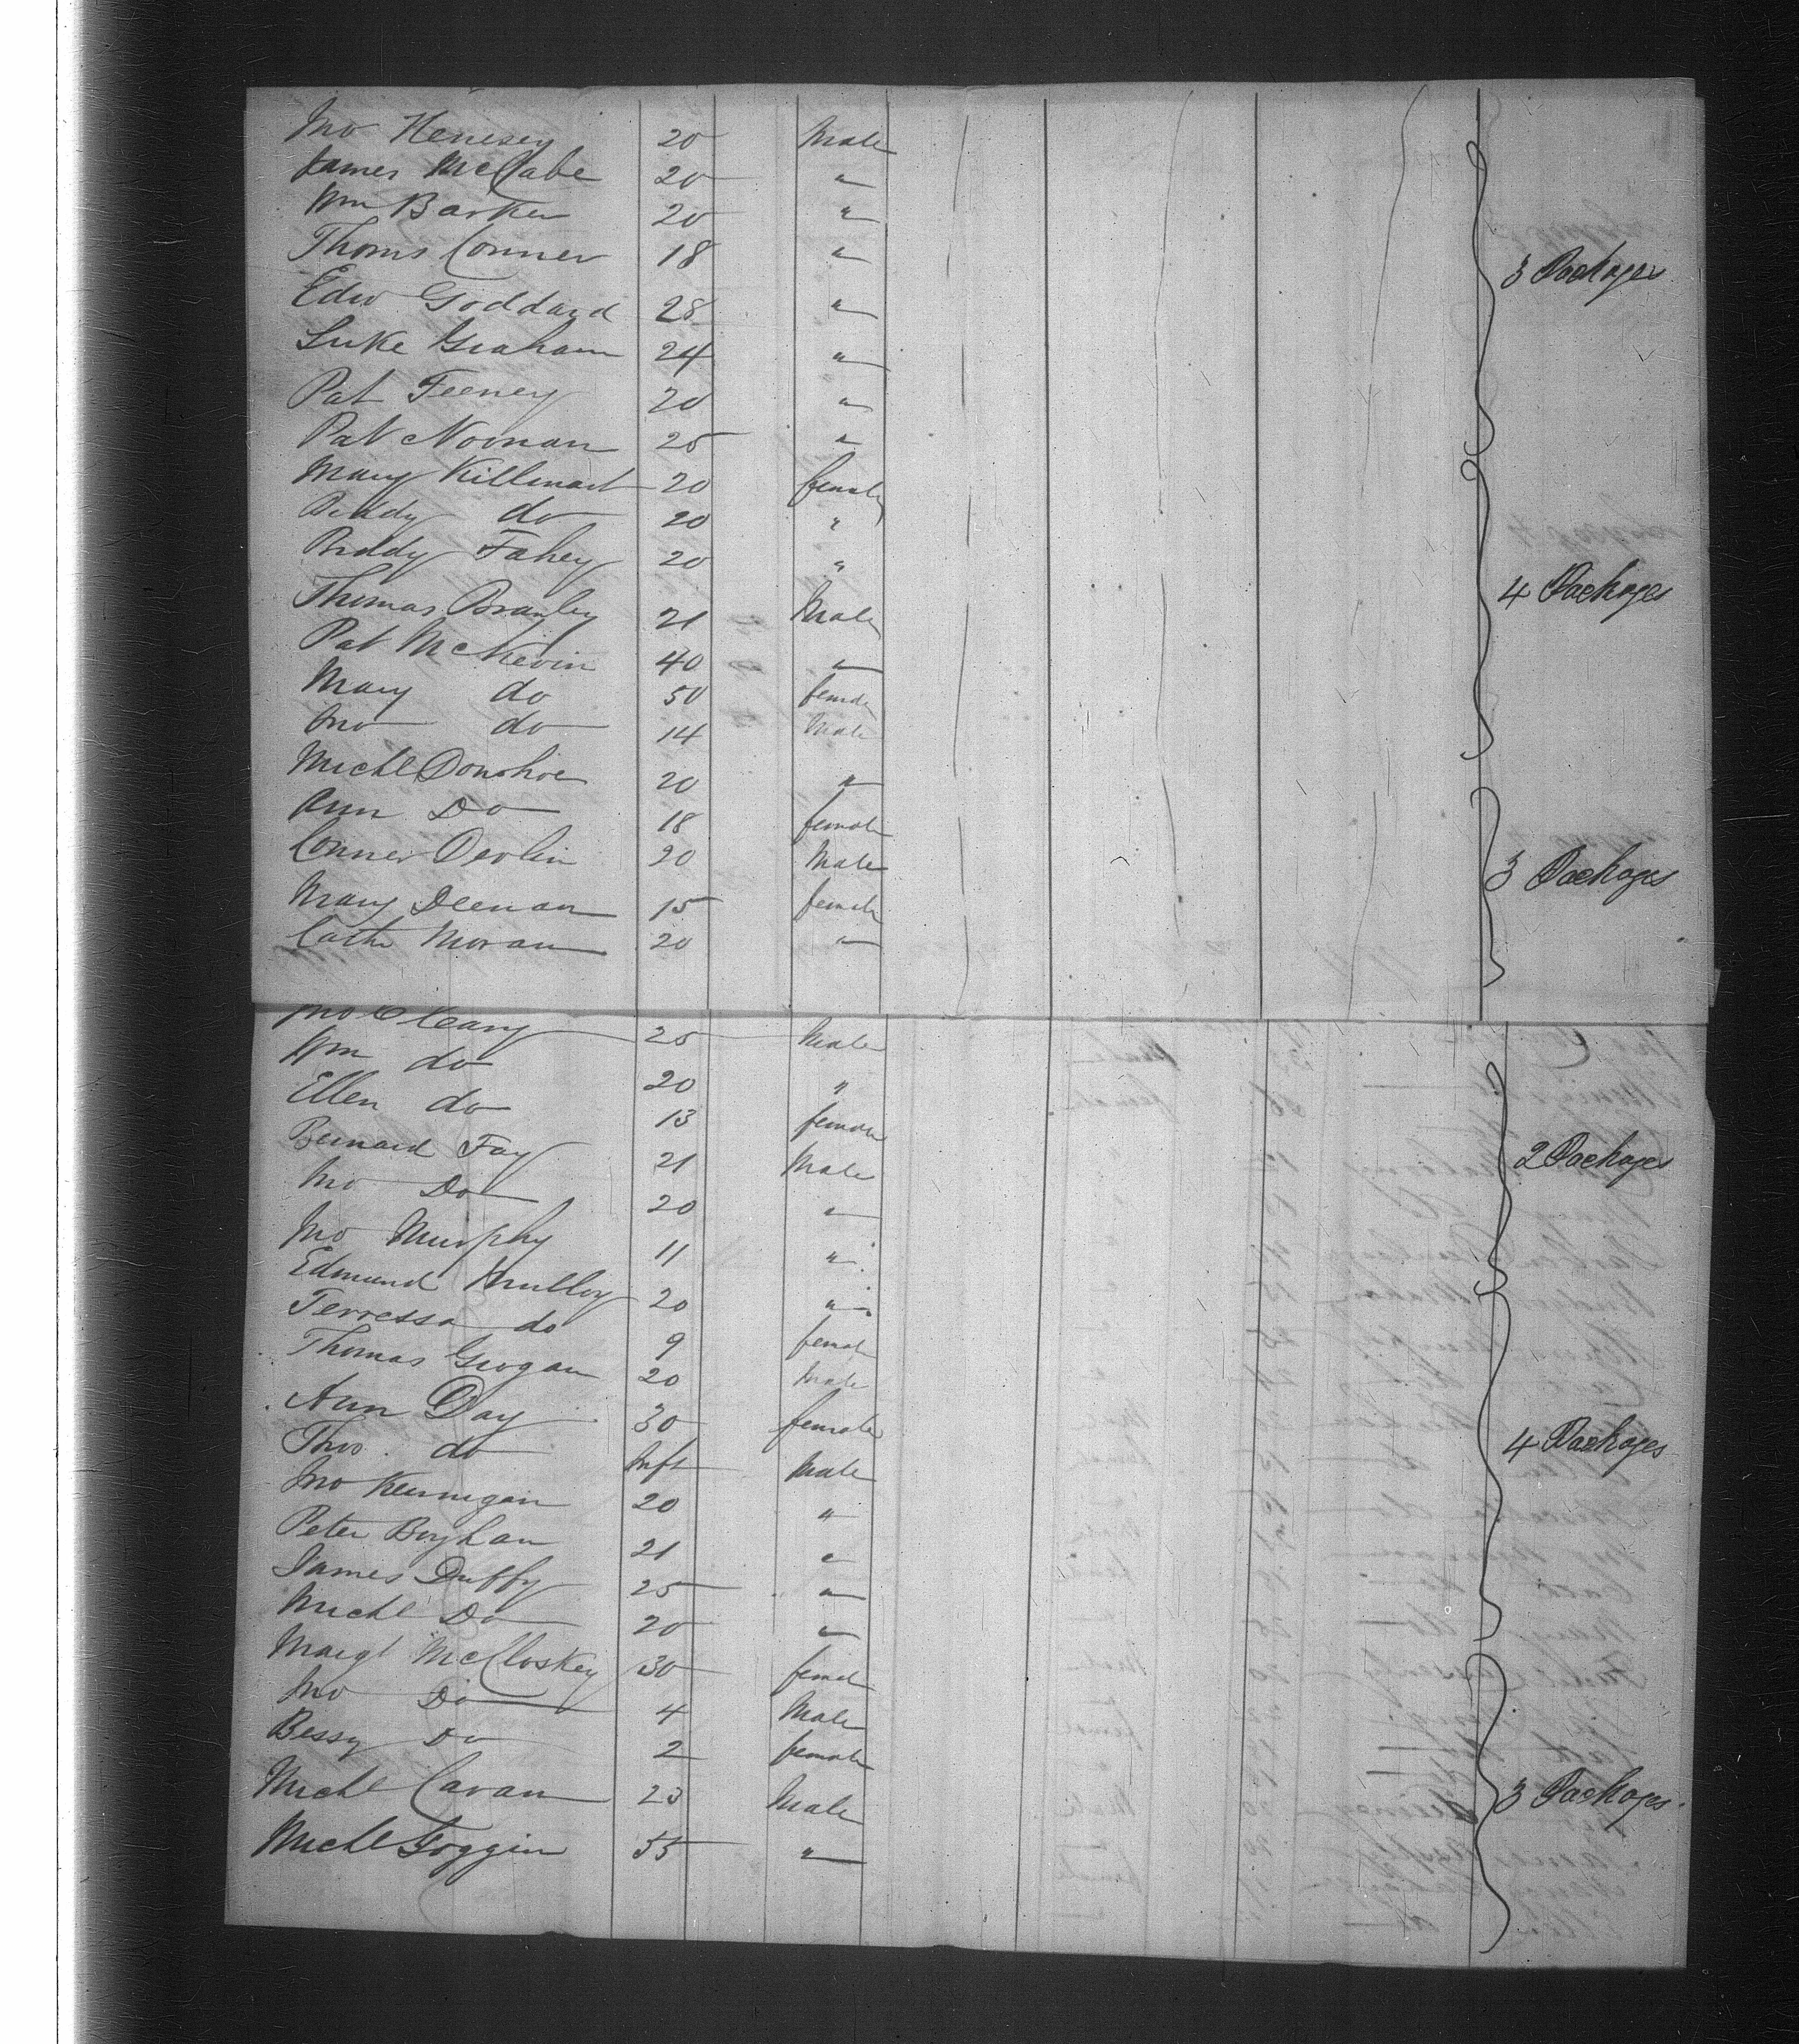 Jno Henesey 20 Male
James McCabe 20 "
Wm Barker 20 "
Thoms Conner 18 "
3 Packages
Edw Goddard 28 "
Luke Graham 24 "
Pat Feeney 20 "
Pat Noonan 25 "
Mary Killmart 20 female
Biddy do 20 "
Biddy Fahey 20 "
4 Packages
Thomas Branley 21 Male
Pat McNevin 40 "
Mary do 50 female
Jno do 14 Male
Michl Donohoe 20 "
Ann Do 18 female
Conner Devlin 20 Male
3 Packages
Mary Deenan 15 female
Cath Moran 20 "
Jno Cleary 25 Male
Wm do 20 "
Ellen do 13 female
Bernard Fay 21 Male
2 Packages
Jno Do 20 "
Jno Murphy 11 "
Edmund Mulloy 20 "
Terressa do 9 female
Thomas Grogan 20 Male
Ann Day 30 female
Thos. do Inft Male
4 Packages
Jno Kernigan 20 "
Peter Boylan 21 "
James Duffy 25 "
Michl Do 20 "
Margt McCloskey 30 female
Jno Do 4 Male
Bessy Do 2 female
Michl Cavan 23 Male
3 Packages.
Michl Goggin 55 "